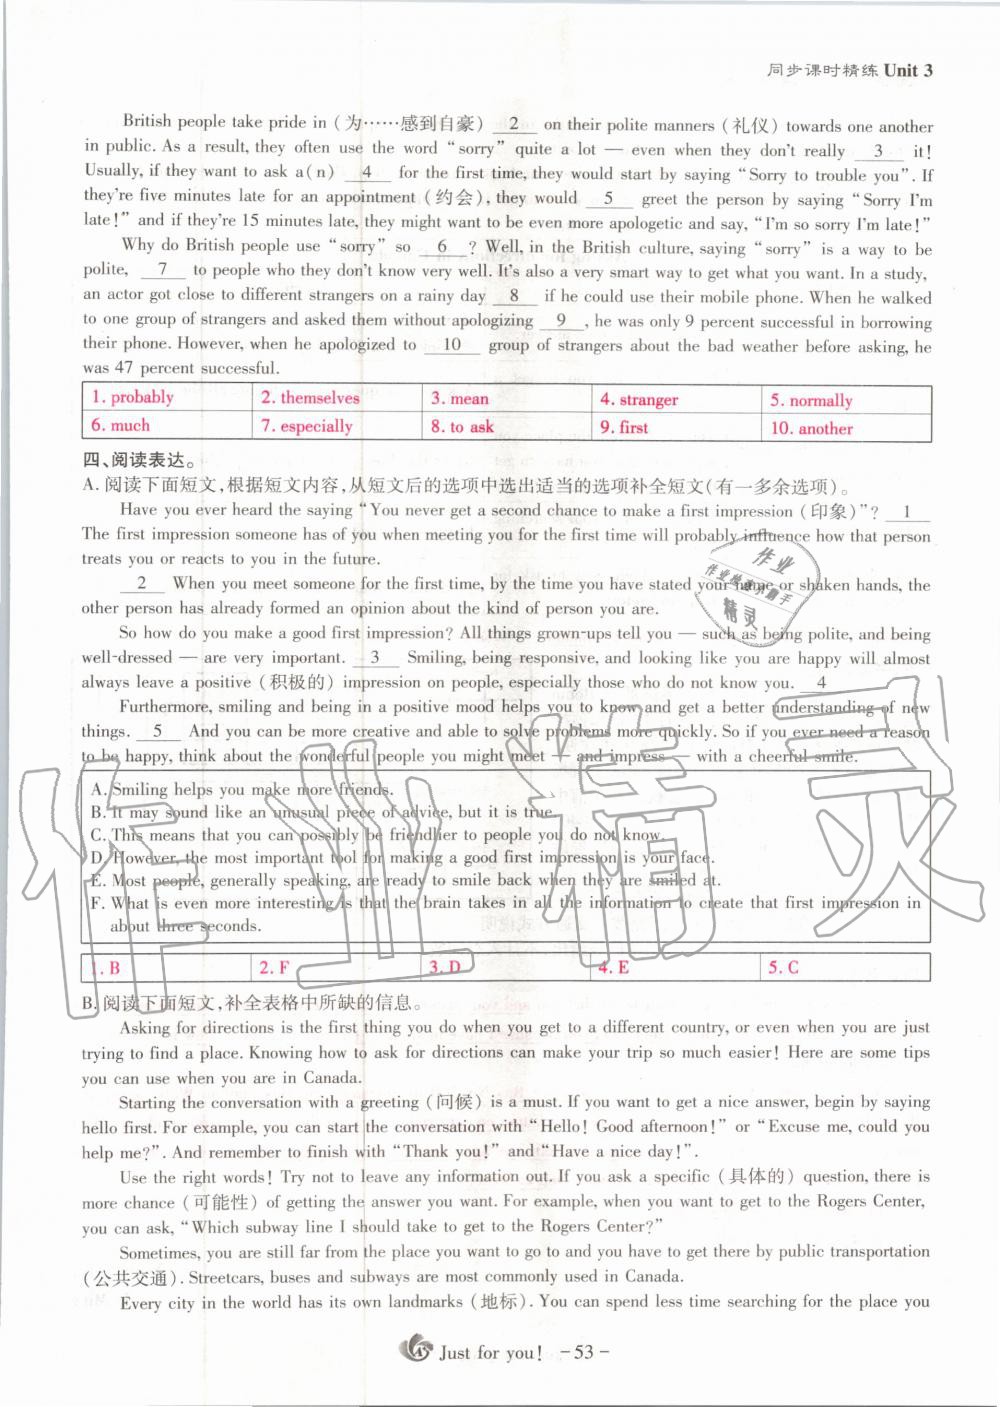 同步课时精练 Unit 3
British people take pride in (为……感到自豪) 2 on their polite manners (礼仪) towards one another
in public. As a result, they often use the word “sorry” quite a lot — even when they don't really 3 it!
Usually, if they want to ask a(n) 4 for the first time, they would start by saying “Sorry to trouble you”. If
they're five minutes late for an appointment (约会), they would 5 greet the person by saying “Sorry I'm
late!” and if they're 15 minutes late, they might want to be even more apologetic and say, “I'm so sorry I'm late!”
Why do British people use “sorry” so 6 ? Well, in the British culture, saying “sorry” is a way to be
polite, 7 to people who they don't know very well. It's also a very smart way to get what you want. In a study,
an actor got close to different strangers on a rainy day 8 if he could use their mobile phone. When he walked
to one group of strangers and asked them without apologizing 9 , he was only 9 percent successful in borrowing
their phone. However, when he apologized to 10 group of strangers about the bad weather before asking, he
was 47 percent successful.
1. probably 2. themselves 3. mean 4. stranger 5. normally
6. much 7. especially 8. to ask 9. first 10. another
四、阅读表达。
A. 阅读下面短文,根据短文内容,从短文后的选项中选出适当的选项补全短文(有一多余选项)。
Have you ever heard the saying “You never get a second chance to make a first impression (印象)”? 1
The first impression someone has of you when meeting you for the first time will probably influence how that person
treats you or reacts to you in the future.
2 When you meet someone for the first time, by the time you have stated your name or shaken hands, the
other person has already formed an opinion about the kind of person you are.
So how do you make a good first impression? All things grown-ups tell you — such as being polite, and being
well-dressed — are very important. 3 Smiling, being responsive, and looking like you are happy will almost
always leave a positive (积极的) impression on people, especially those who do not know you. 4
Furthermore, smiling and being in a positive mood helps you to know and get a better understanding of new
things. 5 And you can be more creative and able to solve problems more quickly. So if you ever need a reason
to be happy, think about the wonderful people you might meet — and impress — with a cheerful smile.
A. Smiling helps you make more friends.
B. It may sound like an unusual piece of advice, but it is true.
C. This means that you can possibly be friendlier to people you do not know.
D. However, the most important tool for making a good first impression is your face.
E. Most people, generally speaking, are ready to smile back when they are smiled at.
F. What is even more interesting is that the brain takes in all the information to create that first impression in
about three seconds.
1. B 2. F 3. D 4. E 5. C
B. 阅读下面短文,补全表格中所缺的信息。
Asking for directions is the first thing you do when you get to a different country, or even when you are just
trying to find a place. Knowing how to ask for directions can make your trip so much easier! Here are some tips
you can use when you are in Canada.
Starting the conversation with a greeting (问候) is a must. If you want to get a nice answer, begin by saying
hello first. For example, you can start the conversation with “Hello! Good afternoon!” or “Excuse me, could you
help me?”. And remember to finish with “Thank you!” and “Have a nice day!”.
Use the right words! Try not to leave any information out. If you ask a specific (具体的) question, there is
more chance (可能性) of getting the answer you want. For example, when you want to get to the Rogers Center,
you can ask, “Which subway line I should take to get to the Rogers Center?”
Sometimes, you are still far from the place you want to go to and you have to get there by public transportation
(公共交通). Streetcars, buses and subways are most commonly used in Canada.
Every city in the world has its own landmarks (地标). You can spend less time searching for the place you
Just for you! - 53 -
作业
精灵
作业精灵